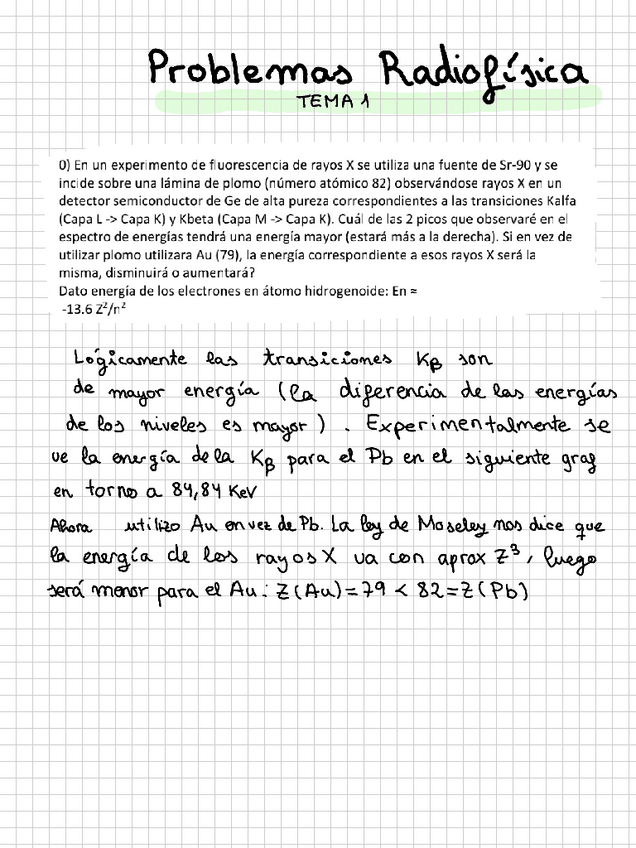 Problemas Radiofísica
TEMA 1
0) En un experimento de fluorescencia de rayos X se utiliza una fuente de Sr-90 y se
incide sobre una lámina de plomo (número atómico 82) observándose rayos X en un
detector semiconductor de Ge de alta pureza correspondientes a las transiciones Kalfa
(Capa L -> Capa K) y Kbeta (Capa M -> Capa K). Cuál de las 2 picos que observaré en el
espectro de energías tendrá una energía mayor (estará más a la derecha). Si en vez de
utilizar plomo utilizara Au (79), la energía correspondiente a esos rayos X será la
misma, disminuirá o aumentará?
Dato energía de los electrones en átomo hidrogenoide: En ≈
-13.6 Z²/n²
Lógicamente las transiciones Kβ son
de mayor energía (la diferencia de las energías
de los niveles es mayor). Experimentalmente se
ve la energía de la Kβ para el Pb en el siguiente graf
en torno a 84,84 KeV
Ahora utilizo Au en vez de Pb. La ley de Moseley nos dice que
la energía de los rayos X va con aprox Z³, luego
será menor para el Au: Z(Au)=79 < 82=Z(Pb)